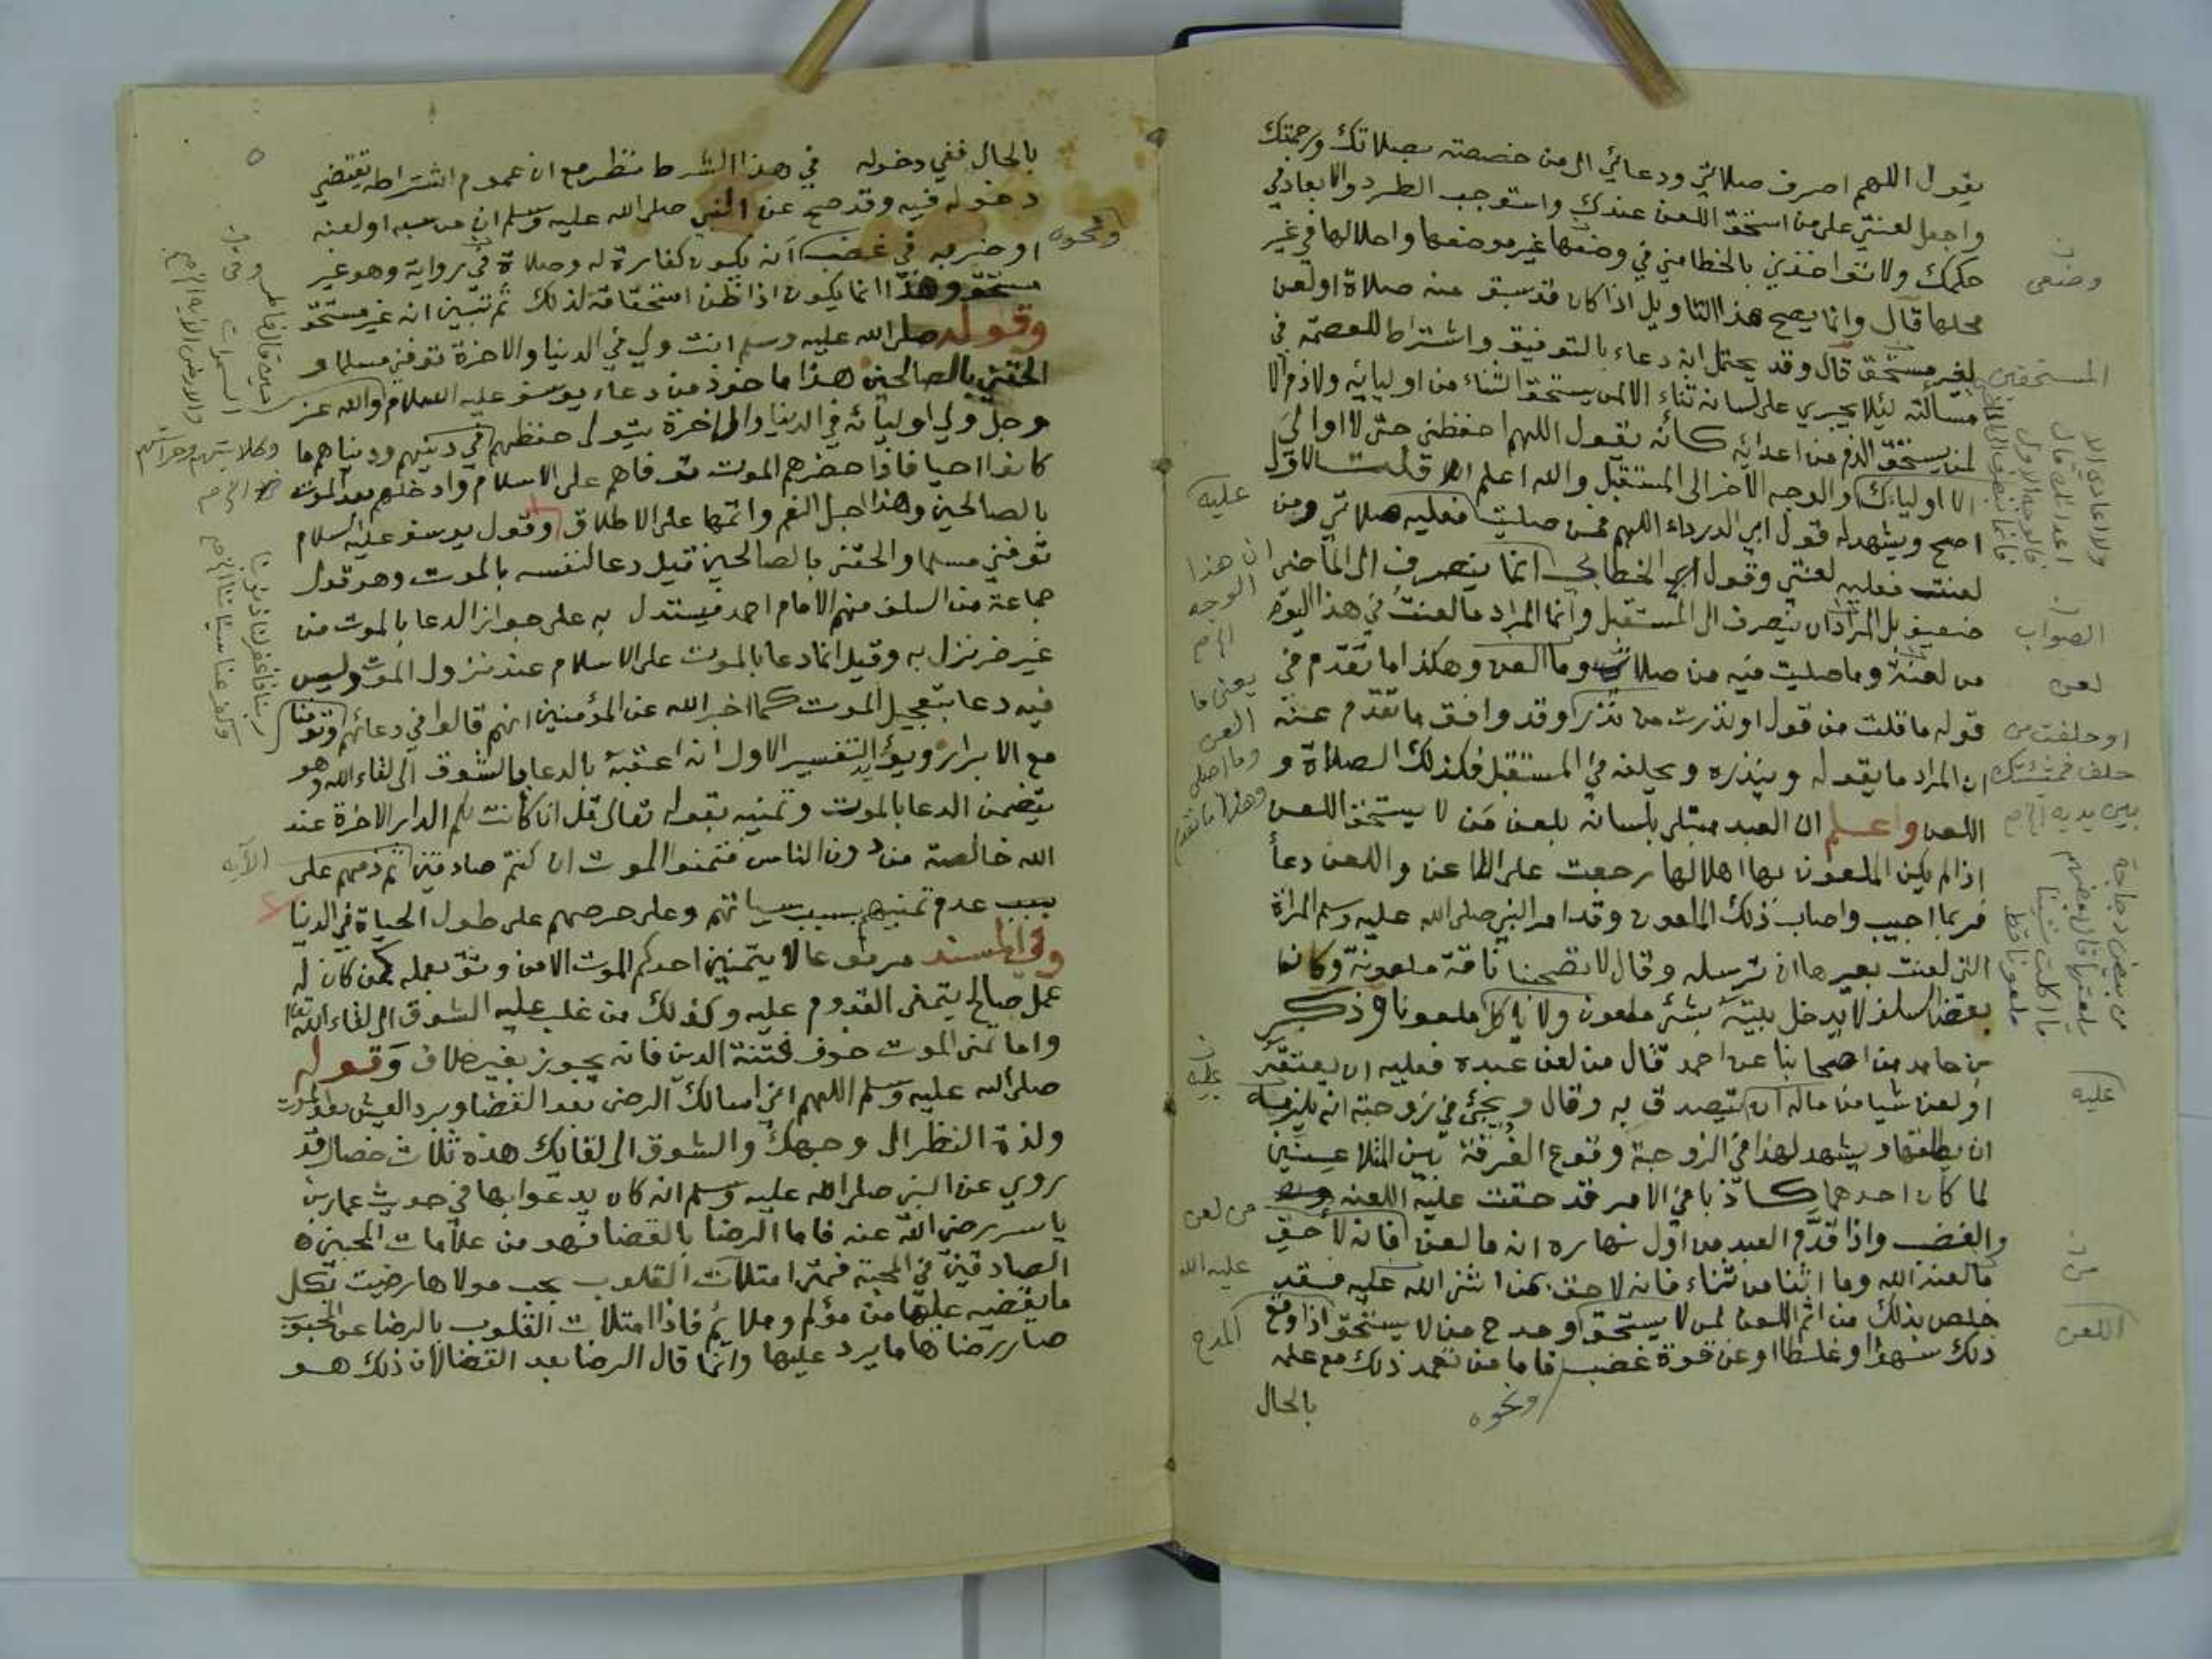 يقول اللهم اصرف صلاتي ودعائي الى من خصصته بصلاتك ورحمتك
واجعل لعنتي على من استحق اللعن عندك واستوجب الطرد والابعاد في
حكمك ولا تؤاخذني بالخطا مني في وضعها غير موضعها واحلالها في غير
محلها قال وانما يصح هذا التاويل اذا كان قد سبق منه صلاة او لعن
لغير مستحق قال وقد يحتمل انه دعاء بالتوفيق واشتراط للعصمة في
مسالته ليلا يجري على لسانه ثناء الا لمن يستحق الثناء من اوليائه ولا ذم الا
لمن يستحق الذم من اعدائه كانه يقول اللهم احفظني حتى لا اوالي
الا اولياءك والوجه الاخر الى المستقبل والله اعلم قلت الاول
اصح ويشهد له قول ابي الدرداء اللهم فمن صليت فعليه صلاتي ومن
لعنت فعليه لعنتي وقول الخطابي انما ينصرف الى الماضي
ضعيف بل المراد ان يتصرف الى المستقبل وانما المراد ما لعنت في هذا اليوم
من لعنة وما صليت فيه من صلاة وما العن وهكذا ما تقدم في
قوله ما قلت من قول او نذرت من نذر وقد وافق ما تقدم عنه
ان المراد ما يقوله وينذره ويحلفه في المستقبل فكذلك الصلاة و
اللعن واعلم ان العبد مبتلى بلسانه يلعن من لا يستحق اللعن
اذا لم يكن الملعون بها اهلا لها رجعت على اللاعن واللعن دعا
فربما اجيب واصاب ذلك الملعون وقد امر النبي صلى الله عليه وسلم المراة
التي لعنت بعيرها ان ترسله وقال لا تصحبنا ناقة ملعونة وكان
بعض السلف لا يدخل بيته بشئ ملعون ولا ياكل ملعونا وذكر
بن حامد من اصحابنا عن احمد قال من لعن عبده فعليه ان يعتقه
او لعن شيا من ماله ان يتصدق به وقال ويجئ في زوجته انه يلزمه
ان يطلقها ويشهد لهذا في الزوجة وقوع الفرقة بين المتلاعنين
لما كان احدهما كاذبا في الامر قد حقت عليه اللعنة
والغضب واذا قدم العبد من اول نهاره انه ما لعن فانه لاحق
ما لعنه الله وما اثنا من ثناء فانه لاحق بمن اثنى الله عليه فقد
خلص بذلك من اثم اللعن لمن لا يستحق ومدح من لا يستحق اذا وقع
ذلك سهوا او غلطا او عن قوة غضب فاما من تعمد ذلك مع علمه
بالحال
ونحوه
وضعي
المستحقين
الصواب
لعن
او حلفت من
حلف فمشيئتك
بين يديه
عليه
اللعن
عليه
ان هذا
الوجه
يعني ما
العن
وما اصلي
وهكذا ما تقدم
عليه
من لعن
عليه الله
المدح
٥
بالحال ففي دخوله في هذا الشرط نظر مع ان عموم اشتراطه يقتضي
دخوله فيه وقد صح عن النبي صلى الله عليه وسلم ان من سبه او لعنه
او ضربه في غضب انه يكون كفارة له وصلاة في رواية وهو غير
مستحق وهذا انما يكون اذا ظن استحقاقه لذلك ثم تبين انه غير مستحق
وقوله صلى الله عليه وسلم انت ولي في الدنيا والاخرة توفني مسلما و
الحقني بالصالحين هذا ماخوذ من دعاء يوسف عليه السلام والله عز
وجل ولي اوليائه في الدنيا والاخرة يتولى حفظهم في دينهم ودنياهم ما
كانوا احيا فاذا حضرهم الموت توفاهم على الاسلام وادخلهم بعد الموت
بالصالحين وهذا اجل النعم واتمها على الاطلاق وقول يوسف عليه السلام
توفني مسلما والحقني بالصالحين قيل دعا لنفسه بالموت وهو قول
جماعة من السلف منهم الامام احمد فيستدل به على جواز الدعا بالموت من
غير ضر نزل به وقيل انما دعا بالموت على الاسلام عند نزول الموت وليس
فيه دعا بتعجيل الموت كما اخبر الله عن المؤمنين انهم قالوا في دعائهم وتوفنا
مع الابرار ويؤيد التفسير الاول انه اعقبه بالدعا بالشوق الى لقاء الله وهو
يتضمن الدعا بالموت وتمنيه بقوله تعالى قل ان كانت لكم الدار الاخرة عند
الله خالصة من دون الناس فتمنوا الموت ان كنتم صادقين ثم ذمهم على
عدم تمنيهم بسبب سياتهم وعلى حرصهم على طول الحياة في الدنيا
وفي المسند مرفوعا لا يتمنين احدكم الموت الا من وثق بعمله فمن كان له
عمل صالح يتمنى القدوم عليه وكذلك من غلب عليه الشوق الى لقاء الله تعالى
واما تمنى الموت خوف فتنة الدين فانه يجوز بغير خلاف وقوله
صلى الله عليه وسلم اللهم اني اسالك الرضى بعد القضا وبرد العيش بعد الموت
ولذة النظر الى وجهك والشوق الى لقائك هذه ثلاث خصال قد
روي عن النبي صلى الله عليه وسلم انه كان يدعوا بها في حديث عمار بن
ياسر رضي الله عنه فاما الرضا بالقضا فهو من علامات المحبين
الصادقين في المحبة فمتى امتلات القلوب بحب مولاها رضيت بكل
ما يقضيه عليها من مؤلم وملائم فاذا امتلات القلوب بالرضا عن المحبوب
صار رضاها ما يرد عليها وانما قال الرضا بعد القضا لان ذلك هو
ونحوه
ربنا فاغفر لنا ذنوبنا
وكفر عنا سيئاتنا
الآية